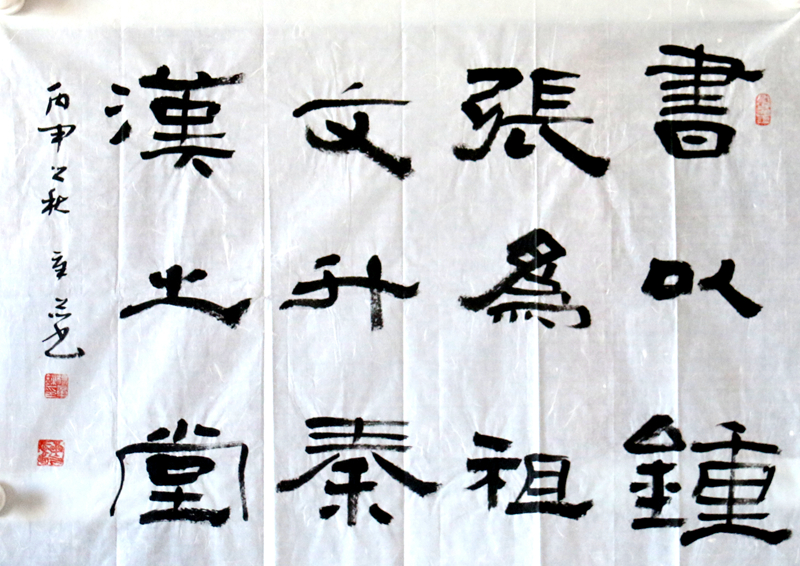 書以鍾
張為祖
文升秦
漢之堂
丙申之秋